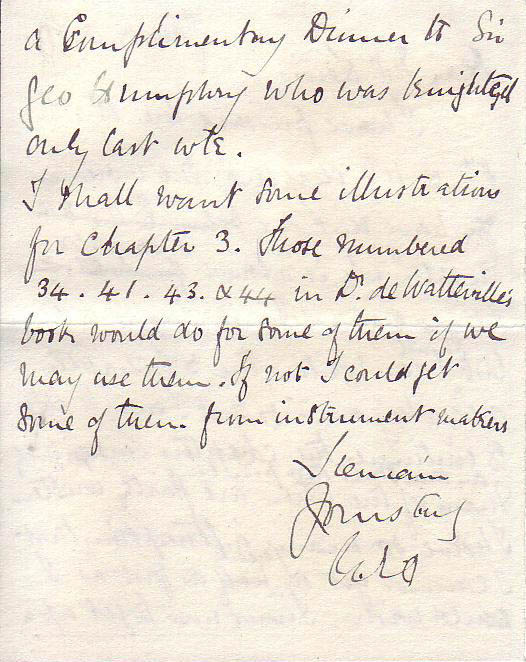 a Complimentary Dinner to Sir
Geo Humphry who was knighted
only last wk.
I shall want some illustrations
for Chapter 3. Those numbered
34. 41. 43. & 44 in Dr. de Watteville's
book would do for some of them if we
may use them. If not I could get
some of them from instrument makers
I remain
Yours truly